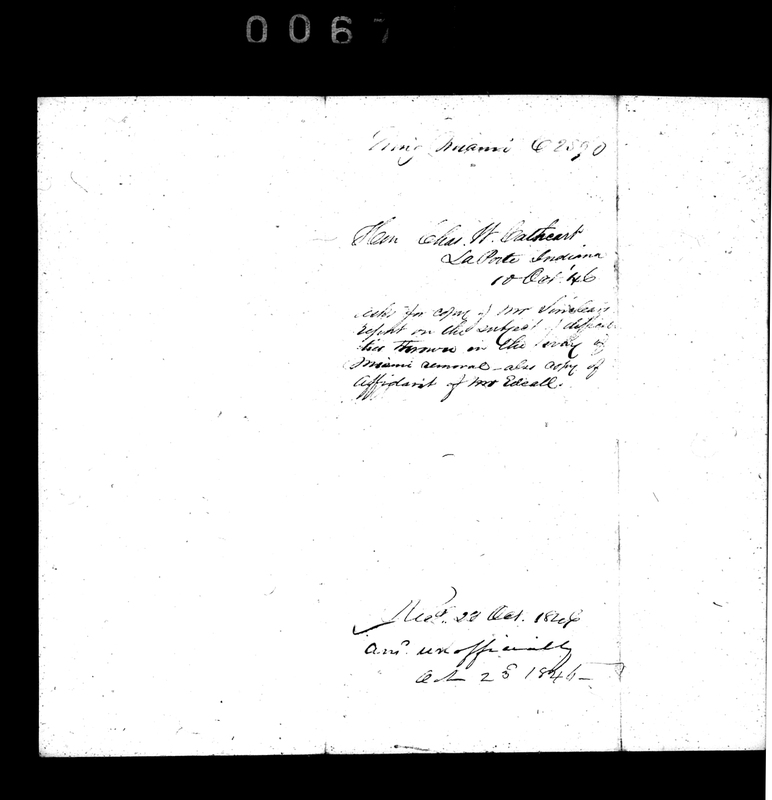 0067
Emig Miami C2890
Hon Chas. W. Cathcart
La Porte Indiana
10 Oct. 46
asks for copy of Mr Sinclear's
report on the subject of difficul-
ties thrown in the way of
Miami removal - also copy of
affidavit of Mr Edsall.
Recd. 20 Oct. 1846
Ansd. unofficially
Oct 23 1846